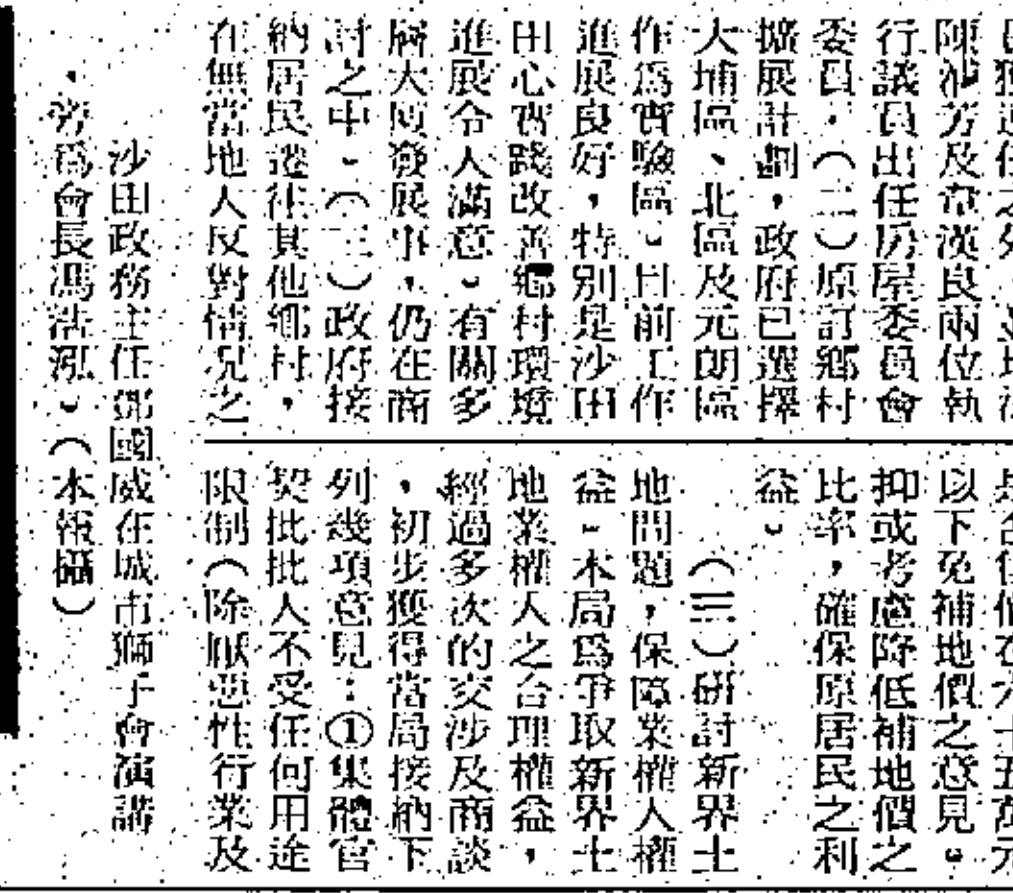 陳沛芳及章漢良兩位執
行議員出任房屋委員會
委員，（二）原訂鄉村
擴展計劃，政府已選擇
大埔區、北區及元朗區
作爲實驗區。目前工作
進展良好，特別是沙田
田心實踐改善鄉村環境
進展令人滿意。有關多
層大廈發展事，仍在商
討之中。（三）政府接
納居民遷往其他鄉村，
在無當地人反對情況之
以下免補地價之意見。
抑或考慮降低補地價之
比率，確保原居民之利
益。
（三）研討新界土
地問題，保障業權人權
益。本局爲爭取新界土
地業權人之合理權益，
經過多次的交涉及商談
，初步獲得當局接納下
列幾項意見：①集體官
契批批人不受任何用途
限制（除厭惡性行業及
沙田政務主任鄧國威在城市獅子會演講
，旁爲會長馮浩泓。（本報攝）